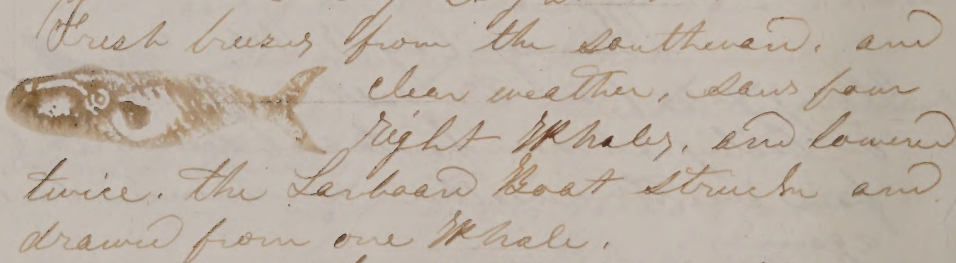 Fresh breezes from the southward. and
clear weather, saw four
right Whales, and lowered
twice. the Larboard Boat struck and
drawed from one Whale.